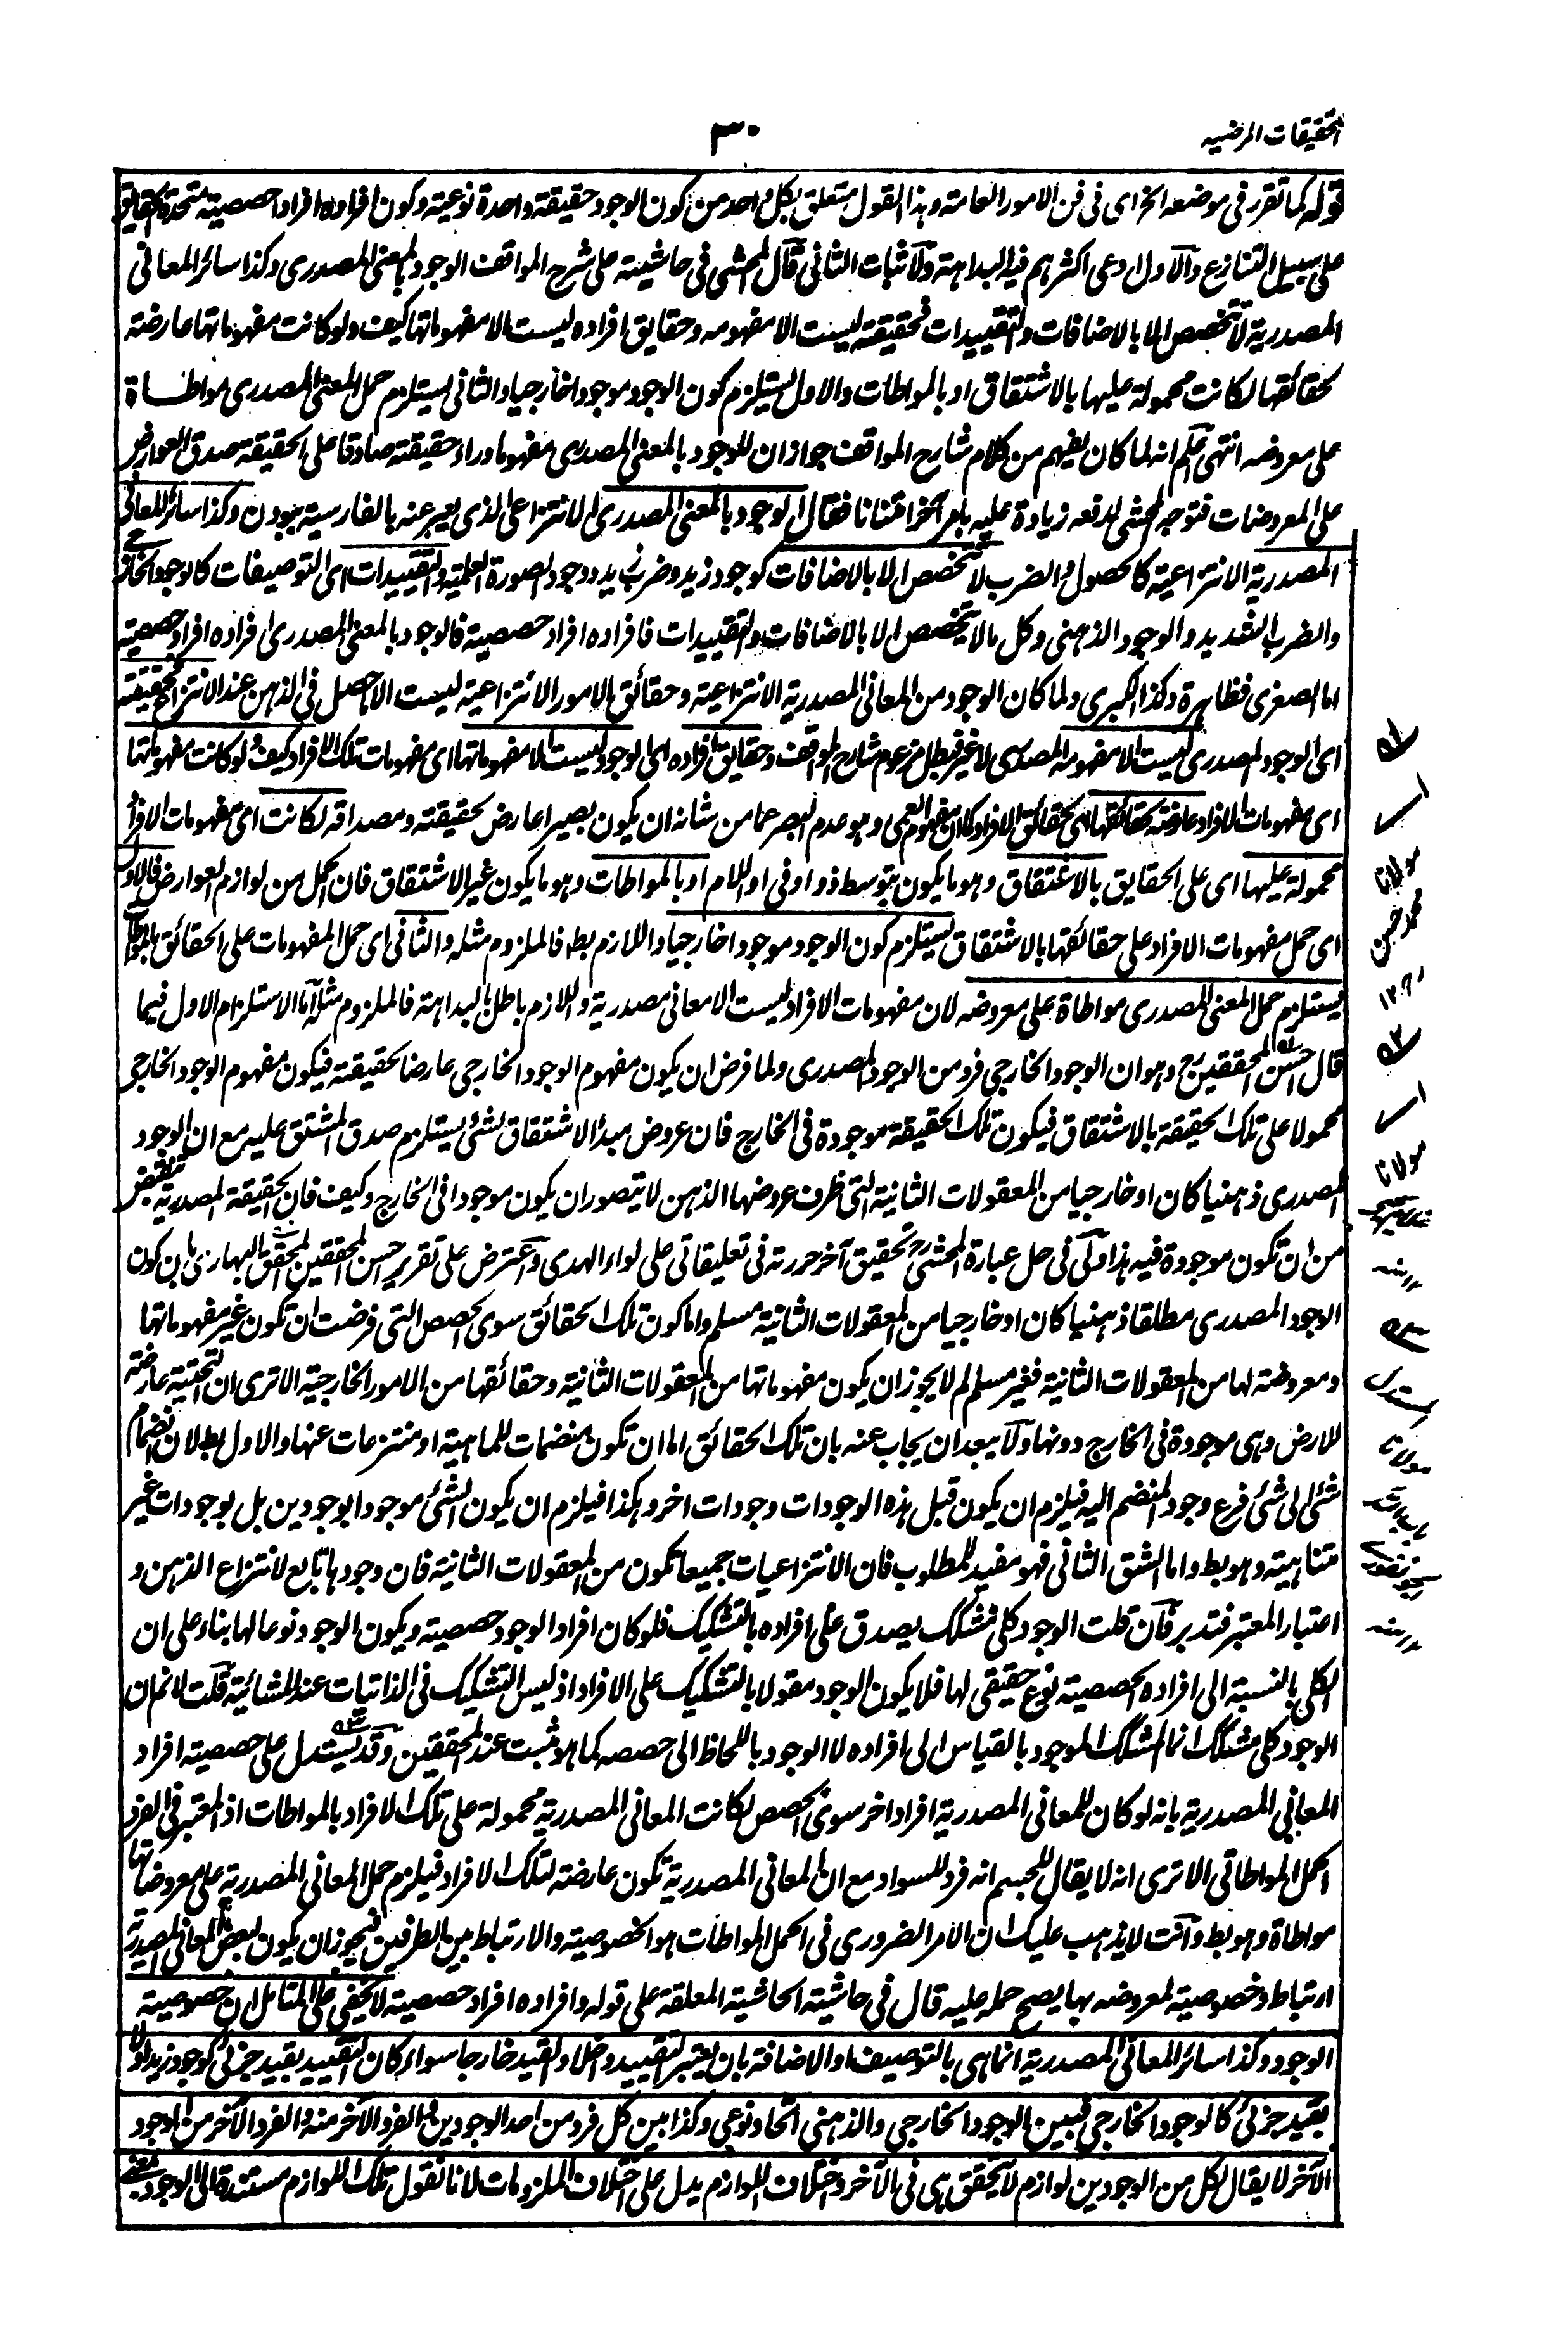 التحقيقات المرضيه
٣٠
قوله كما تقرر فى موضعه الخ اى فى فن الامور العامة وهذا القول متعلق بكل واحد من كون الوجود حقيقة واحدة نوعية وكون افراده افرادا حصصية متحدة الحقايق
على سبيل التنازع والاول ادعى اكثرهم فيه البداهة ولاثبات الثانى قال المحشى فى حاشيته على شرح المواقف الوجود بالمعنى المصدرى وكذا سائر المعانى
المصدرية لا تتخصص الا بالاضافات والتقييدات فحقيقته ليست الا مفهومه وحقايق افراده ليست الا مفهوماتها كيف ولو كانت مفهوماتها عارضة
لحقائقها لكانت محمولة عليها بالاشتقاق او بالمواطات والاول يستلزم كون الوجود موجودا خارجيا والثانى يستلزم حمل المعنى المصدرى مواطاة
على معروضه انتهى اعلم انه لما كان يفهم من كلام شارح المواقف جواز ان للوجود بالمعنى المصدرى مفهوما وراء حقيقته صادقا على الحقيقة صدق العوارض
على المعروضات فتوجه المحشى لدفعه زيادة عليه بامر آخر امتنانا فقال الوجود بالمعنى المصدرى الانتزاعى الذى يعبر عنه بالفارسية ببودن وكذا سائر المعانى
المصدرية الانتزاعية كالحصول والضرب لا تتخصص الا بالاضافات كوجود زيد وضرب زيد ووجود الصورة العلمية والتقييدات اى التوصيفات كالوجود الخارجى
والضرب الشديد والوجود الذهنى وكل مالا يتخصص الا بالاضافات والتقييدات فافراده افراد حصصية فالوجود بالمعنى المصدرى افراده افراد حصصية
اما الصغرى فظاهرة وكذا الكبرى ولما كان الوجود من المعانى المصدرية الانتزاعية وحقائق الامور الانتزاعية ليست الا ما حصل فى الذهن عند الانتزاع فحقيقته
اى الوجود المصدرى ليست الا مفهومه المصدرى لا غير فبطل مزعوم شارح المواقف وحقايق افراده اى الوجود ليست الا مفهوماتها اى مفهومات تلك الافراد كيف ولو كانت مفهوماتها
اى مفهومات الافراد عارضة لحقائقها اى لحقائق الافراد كما ان مفهوم العمى وهو عدم البصر عما من شانه ان يكون بصيرا عارض لحقيقته ومصداقه لكانت اى مفهومات الافراد
محمولة عليها اى على الحقايق بالاشتقاق وهو ما يكون بتوسط ذو او فى او اللام او بالمواطات وهو ما يكون غير الاشتقاق فان الحمل من لوازم العوارض فالاول
اى حمل مفهومات الافراد على حقائقها بالاشتقاق يستلزم كون الوجود موجودا خارجيا واللازم بط فالملزوم مثله والثانى اى حمل المفهومات على الحقائق بالمواطاة
يستلزم حمل المعنى المصدرى مواطاة على معروضه لان مفهومات الافراد ليست الا معانى مصدرية واللازم باطل بالبداهة فالملزوم مثله اما الاستلزام الاول فبما
قال احسن المحققين رح وهو ان الوجود الخارجى فرد من الوجود المصدرى ولما فرض ان يكون مفهوم الوجود الخارجى عارضا لحقيقته فيكون مفهوم الوجود الخارجى
محمولا على تلك الحقيقة بالاشتقاق فيكون تلك الحقيقة موجودة فى الخارج فان عروض مبدأ الاشتقاق لشئ يستلزم صدق المشتق عليه مع ان الوجود
المصدرى ذهنيا كان او خارجيا من المعقولات الثانية التى ظرف عروضها الذهن لا يتصور ان يكون موجودا فى الخارج وكيف فان الحقيقة المصدرية
من ان تكون موجودة فيه هذا ولى فى حل عبارة المحشى رح تحقيق آخر حررته فى تعليقاتى على لواء الهدى واعترض على تقرير احسن المحققين المحقق البهارى بان كون
الوجود المصدرى مطلقا ذهنيا كان او خارجيا من المعقولات الثانية مسلم واما كون تلك الحقائق سوى الحصص التى فرضت ان تكون غير مفهوماتها
ومعروضة لها من المعقولات الثانية فغير مسلم لم لا يجوز ان يكون مفهوماتها من المعقولات الثانية وحقائقها من الامور الخارجية الا ترى ان التحتية عارضة
للارض وهى موجودة فى الخارج دونها ولا يبعد ان يجاب عنه بان تلك الحقائق اما ان تكون منضمات للماهية او منتزعات عنها والاول بط لان انضمام
شئ الى شئ فرع وجود المنضم اليه فيلزم ان يكون قبل هذه الوجودات وجودات اخر وهكذا فيلزم ان يكون الشئ موجودا بوجودين بل بوجودات غير
متناهية وهو بط واما الشق الثانى فهو مفيد للمطلوب فان الانتزاعيات جميعا تكون من المعقولات الثانية فان وجودها تابع لانتزاع الذهن و
اعتبار المعتبر فتدبر فان قلت الوجود كلى مشكك يصدق على افراده بالتشكيك فلو كان افراد الوجود حصصية ويكون الوجود نوعا لها بناء على ان
الكلى بالنسبة الى افراده الحصصية نوع حقيقى لها فلا يكون الوجود مقولا بالتشكيك على الافراد اذ ليس التشكيك فى الذاتيات عند المشائية قلت لا نم ان
الوجود كلى مشكك انما المشكك الموجود بالقياس الى افراده لا الوجود باللحاظ الى حصصه كما هو مثبت عند المحققين وقد يستدل على حصصية افراد
المعانى المصدرية بانه لو كان للمعانى المصدرية افراد اخر سوى الحصص لكانت المعانى المصدرية محمولة على تلك الافراد بالمواطات اذ المعتبر فى الفرد
الحمل المواطاتى الا ترى انه لا يقال للجسم انه فرد للسواد مع ان المعانى المصدرية تكون عارضة لتلك الافراد فيلزم حمل المعانى المصدرية على معروضاتها
مواطاة وهو بط وانت لا يذهب عليك ان الامر الضرورى فى الحمل المواطات هو الخصوصية والارتباط بين الطرفين فيجوز ان يكون لبعض المعانى المصدرية
ارتباط وخصوصية لمعروضه بها يصح حمله عليه قال فى حاشيته الحاشية المعلقة على قوله وافراده افراد حصصية لا يخفى على المتامل ان خصوصية
الوجود وكذا سائر المعانى المصدرية انما هى بالتوصيف او الاضافة بان يعتبر التقييد داخلا والقيد خارجا سواء كان التقييد بقيد جزئى كوجود زيد او لا
بقيد جزئى كالوجود الخارجى فبين الوجود الخارجى والذهنى اتحاد نوعى وكذا بين كل فرد من احد الوجودين والفرد الآخر منه والفرد الآخر من الوجود
الآخر لا يقال لكل من الوجودين لوازم لا يتحقق هى فى الآخر واختلاف اللوازم يدل على اختلاف الملزومات لانا نقول تلك اللوازم مستندة الى الوجود بمعنى
مولانا
محمد حسن
١٢
مولانا
المستدل
مولانا